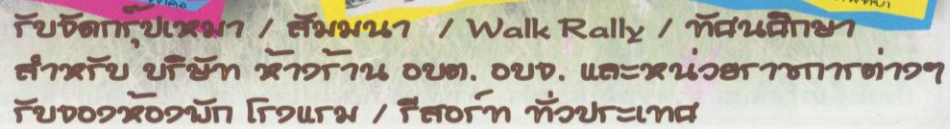 รับจัดกรุ๊ปเหมา / สัมมนา / Walk Rally / ทัศนศึกษา
สำหรับ บริษัท ห้างร้าน อบต. อบจ. และหน่วยราชการต่างๆ
รับจองห้องพัก โรงแรม / รีสอร์ท ทั่วประเทศ